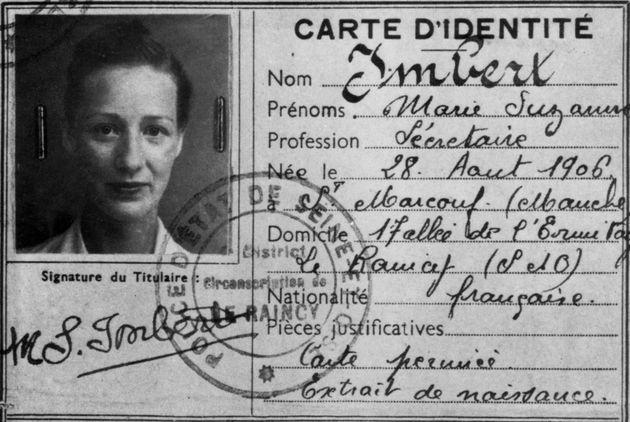 CARTE D'IDENTITÉ
Nom Imbert
Prénoms Marie Suzanne
Profession Sécretaire
Née le 28. Aout 1906
à St Marcouf. (Manche
Domicile 17 allée de l'Ermitag
Le Raincy (S & O)
Nationalité française.
Pièces justificatives
Carte permice.
Extrait de naissance.
Signature du Titulaire :
M. S. Imbert
POLICE D'ETAT DE SEINE
District
Circonscription de
LE RAINCY